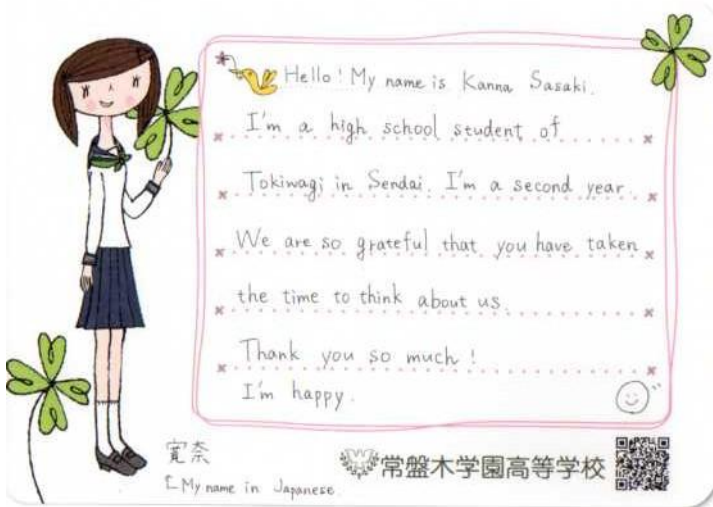 Hello! My name is Kanna Sasaki.
I'm a high school student of
Tokiwagi in Sendai. I'm a second year.
We are so grateful that you have taken
the time to think about us.
Thank you so much!
I'm happy.
寛奈
My name in Japanese
常盤木学園高等学校